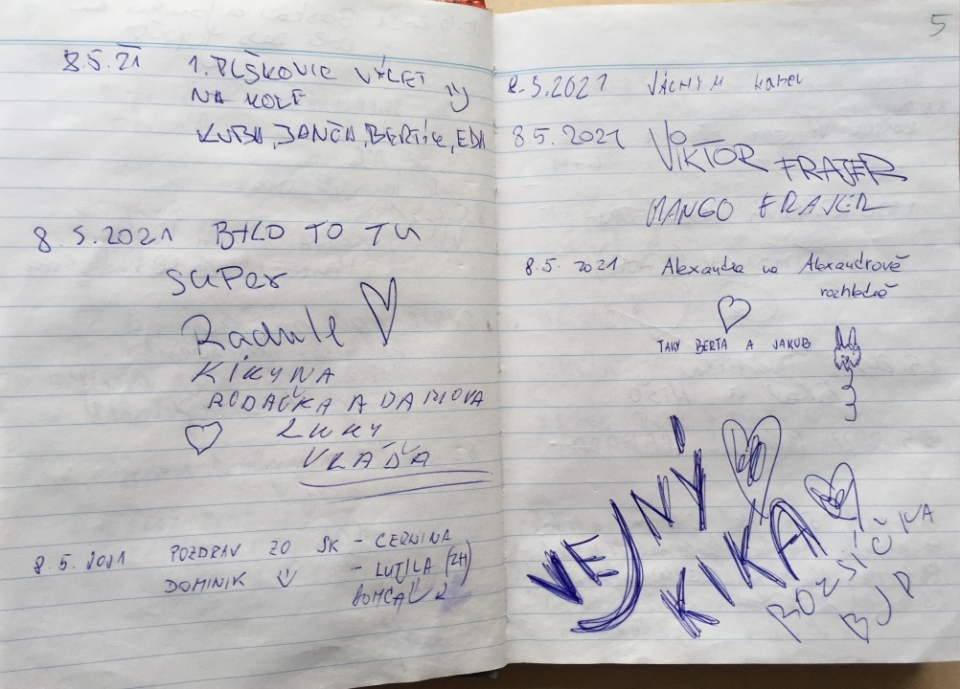 8.5.21 1. PLŠKOVIC VÝLET
NA KOLE
KUBA, JANČA, BERTÍK, EDA
8.5.2021 BYLO TO TU
SUPER
Radule
KIKYNA
RODAČKA A DAMOVA
LUKY
VLÁĎA
8.5.2021 POZDRAV ZO SK - CERNINA
DOMINIK - LUTILA (ZH)
5
8.5.2021
8.5.2021 VIKTOR FRAJER
MANGO FRAJER
8.5.2021 Alexandra na Alexandrově
rozhledně
TAKY BERTA A JAKUB
VEJNÝ
KIKA
ROZSÍČKA
BJP